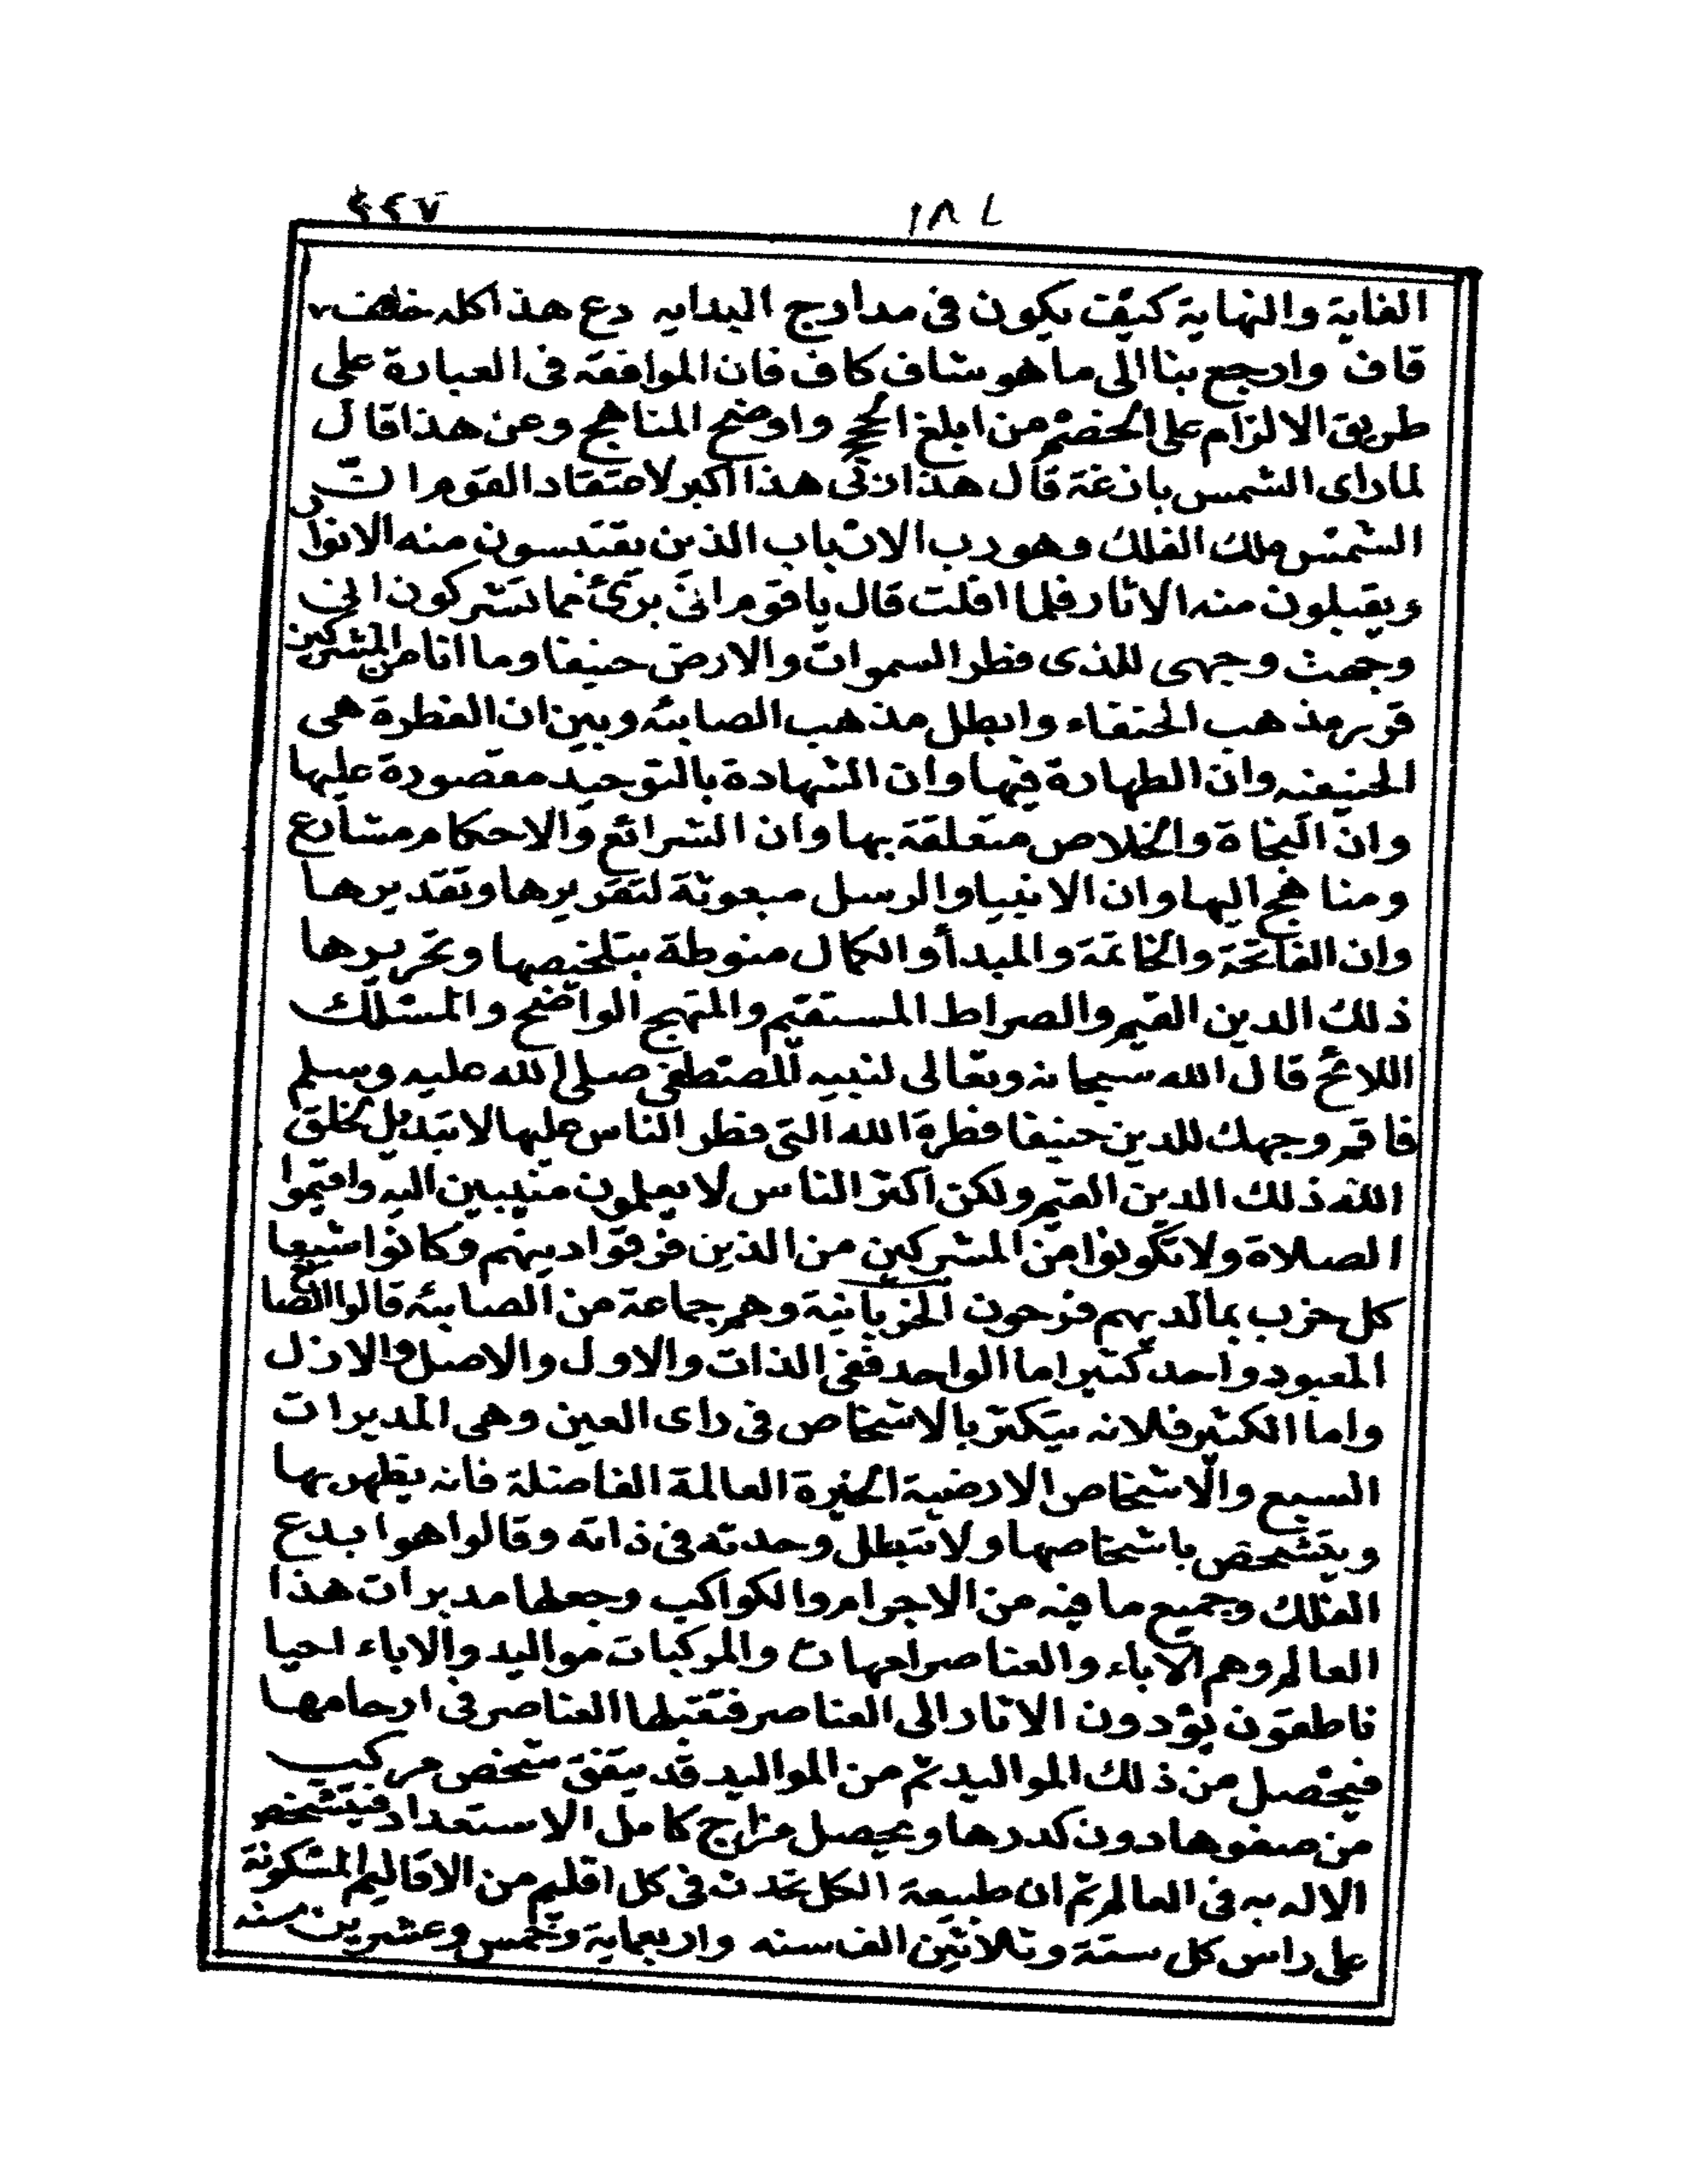 ١٨٦ ٤٤٧
الغاية والنهاية كيف يكون فى مدارج البدايه دع هذا كله خلف
قاف وارجع بنا الى ما هو شاف كاف فان الموافقة فى العبارة على
طريق الالزام على الخصم من ابلغ الحجج واوضح المناهج وعن هذا قال
لما راى الشمس بازغة قال هذا ربى هذا اكبر لاعتقاد القوم ان
الشمس ملك الفلك وهو رب الارباب الذين يقتبسون منه الانوار
ويقبلون منه الاثار فلما افلت قال يا قوم انى برئ مما تشركون انى
وجهت وجهى للذى فطر السموات والارض حنيفا وما انا من المشركين
قرر مذهب الحنفاء وابطل مذهب الصابئه وبين ان الفطرة هى
الحنيفيه وان الطهارة فيها وان الشهادة بالتوحيد مقصورة عليها
وان النجاة والخلاص متعلقة بها وان الشرائع والاحكام مشارع
ومناهج اليها وان الانبيا والرسل مبعوثة لتقريرها وتقديرها
وان الفاتحة والخاتمة والمبدأ والكمال منوطة بتلخيصها وتحريرها
ذلك الدين القيم والصراط المستقيم والمنهج الواضح والمسلك
اللائح قال الله سبحانه وتعالى لنبيه المصطفى صلى الله عليه وسلم
فاقم وجهك للدين حنيفا فطرة الله التى فطر الناس عليها لا تبديل لخلق
الله ذلك الدين القيم ولكن اكثر الناس لا يعلمون منيبين اليه واقيموا
الصلاة ولا تكونوا من المشركين من الذين فرقوا دينهم وكانوا شيعا
كل حزب بما لديهم فرحون الحزبانية وهم جماعة من الصابئه قالوا الصانع
المعبود واحد كثير اما الواحد ففى الذات والاول والاصل والازل
واما الكثير فلانه يتكثر بالاشخاص فى راى العين وهى المدبرات
السبع والاشخاص الارضية الخيرة العالمة الفاضلة فانه يظهر بها
ويتشخص باشخاصها ولا تبطل وحدته فى ذاته وقالوا هو ابدع
الفلك وجميع ما فيه من الاجرام والكواكب وجعلها مدبرات هذا
العالم وهم الاباء والعناصر امهات والمركبات مواليد والاباء احيا
ناطقون يؤدون الاثار الى العناصر فتقبلها العناصر فى ارحامها
فيحصل من ذلك المواليد ثم من المواليد قد يتفق شخص مركب
من صفوها دون كدرها ويحصل مزاج كامل الاستعداد فيتشخص
الاله به فى العالم ثم ان طبيعة الكل تحدث فى كل اقليم من الاقاليم المسكونة
على راس كل ستة وثلاثين الف سنه واربعماية وخمس وعشرين سنه